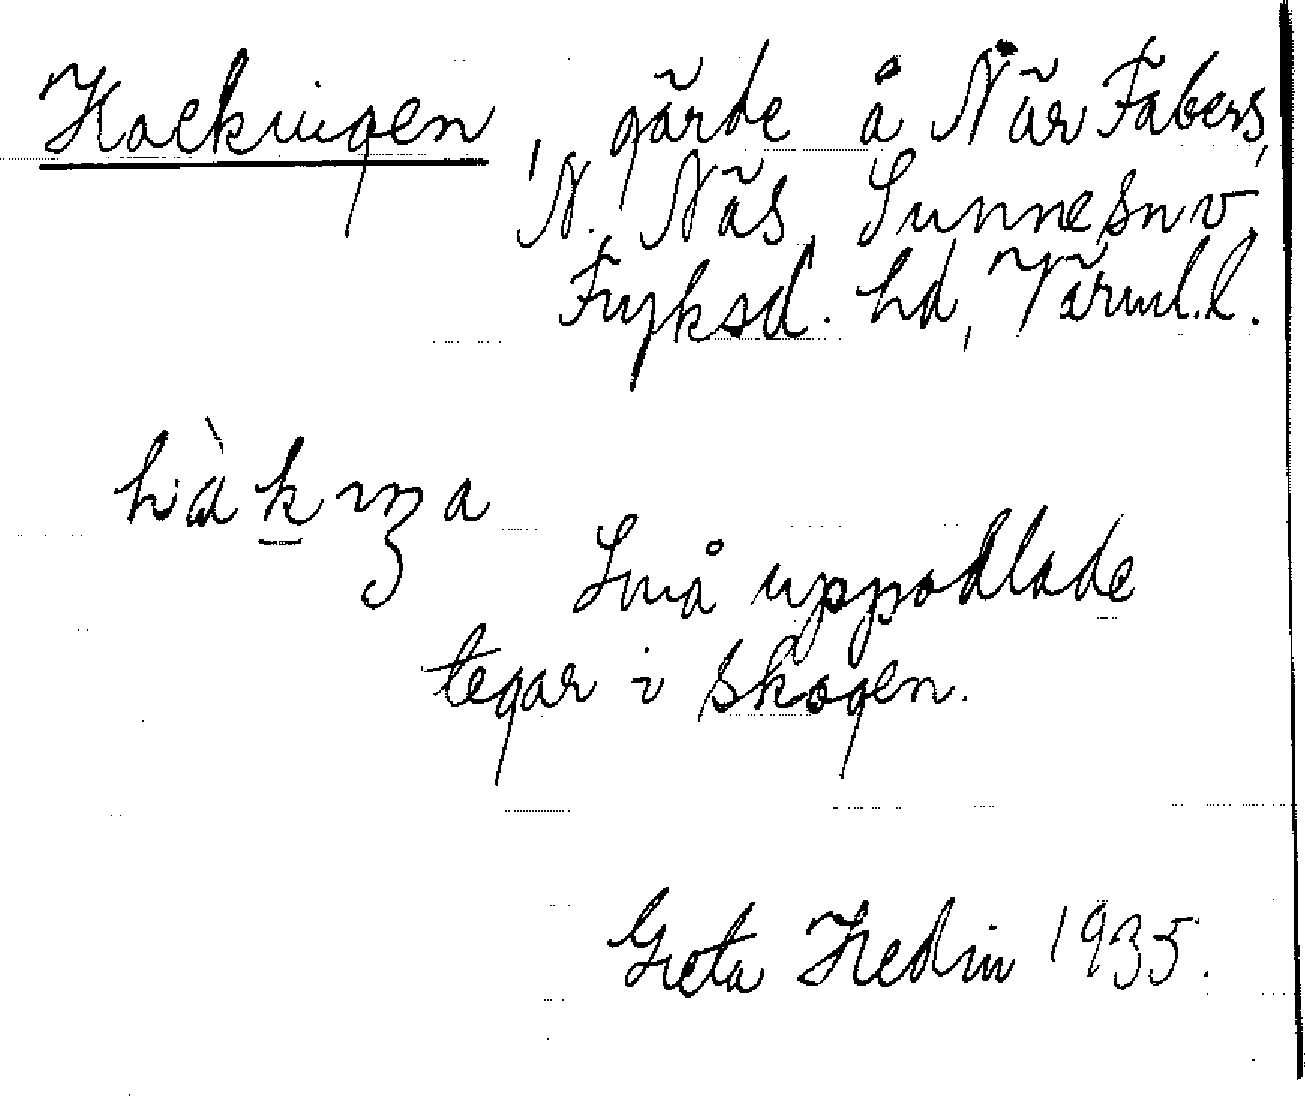 Hackningen, gärde å När Fabers,
N. Näs, Sunne sn v.
Fryksd. hd, Värml.l.
Små uppodlade
tegar i skogen.
Greta Hedin 1935.